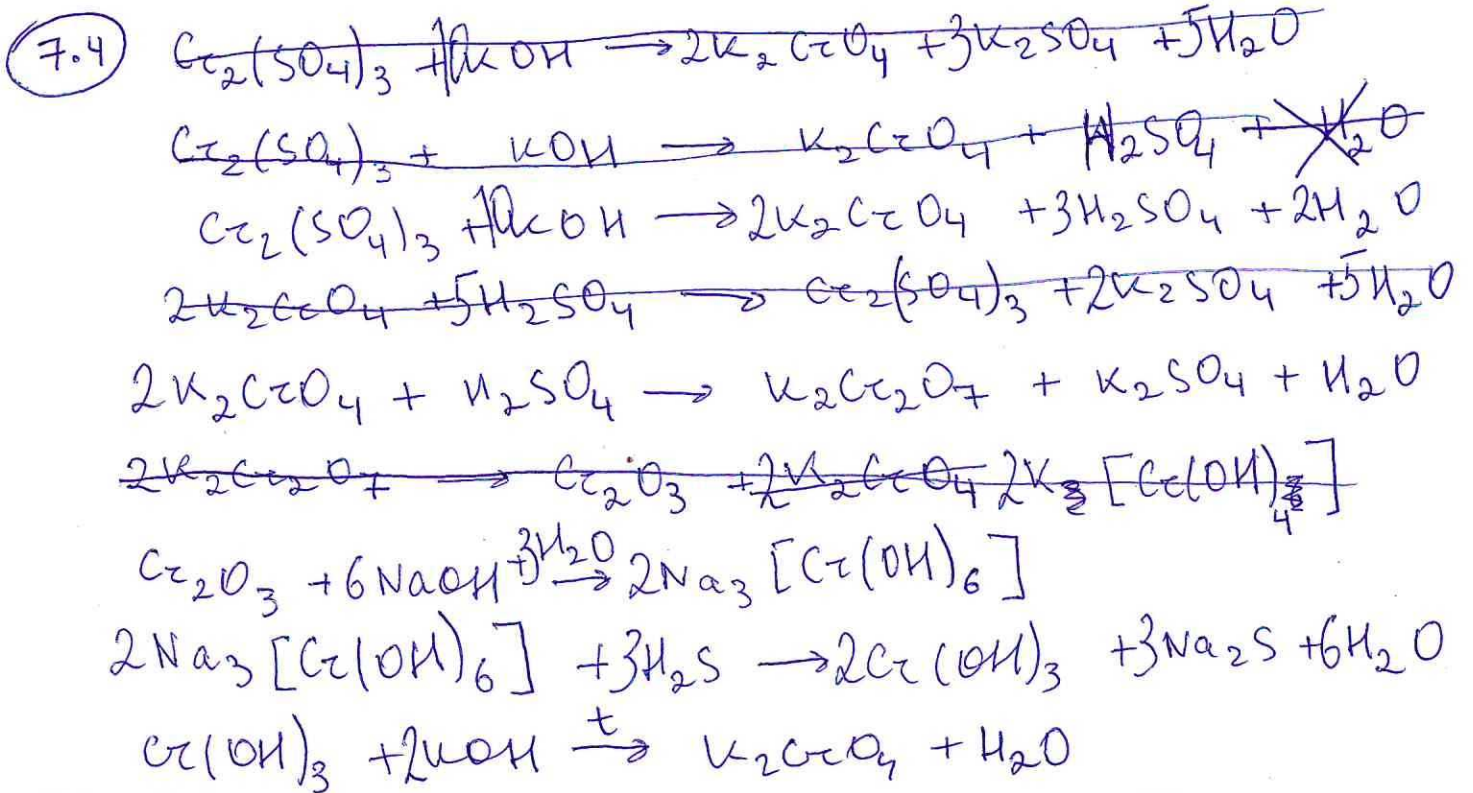 7.4 Cr₂(SO₄)₃ + 10KOH → 2K₂CrO₄ + 3K₂SO₄ + 5H₂O
Cr₂(SO₄)₃ + KOH → K₂CrO₄ + H₂SO₄ + H₂O
Cr₂(SO₄)₃ + 10KOH → 2K₂CrO₄ + 3H₂SO₄ + 2H₂O
2K₂CrO₄ + 5H₂SO₄ → Cr₂(SO₄)₃ + 2K₂SO₄ + 5H₂O
2K₂CrO₄ + H₂SO₄ → K₂Cr₂O₇ + K₂SO₄ + H₂O
2K₂Cr₂O₇ → Cr₂O₃ + 2K₂CrO₄ 2K [Cr(OH)₄]
Cr₂O₃ + 6NaOH + 3H₂O → 2Na₃[Cr(OH)₆]
2Na₃[Cr(OH)₆] + 3H₂S → 2Cr(OH)₃ + 3Na₂S + 6H₂O
Cr(OH)₃ + 2KOH t→ K₂CrO₄ + H₂O